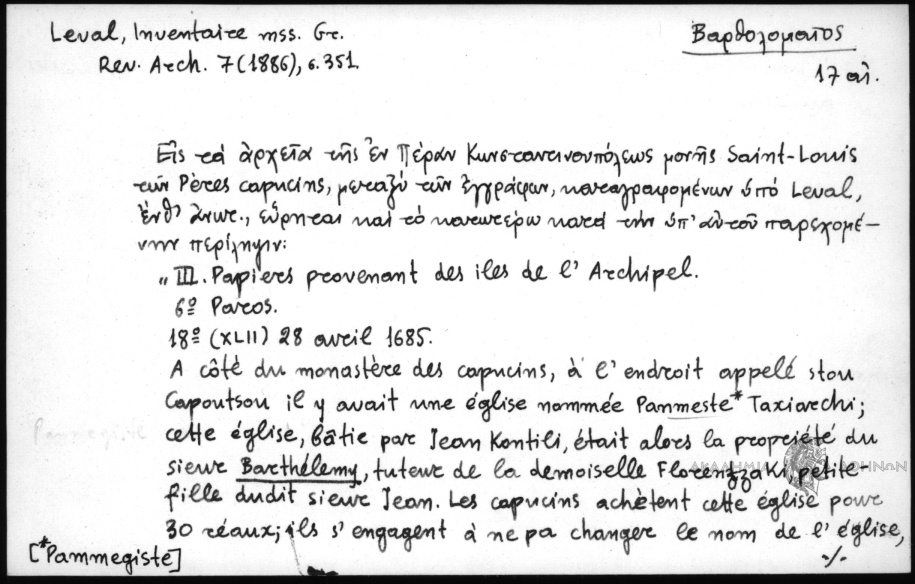 Leval, Inventaire mss. Gr.
Βαρθολομαῖος
Rev. Arch. 7 (1886), σ. 351.
17 αἰ.
Εἰς τὰ ἀρχεῖα τῆς ἐν Πέραν Κωνσταντινουπόλεως μονῆς Saint-Louis
τῶν Pères capucins, μεταξὺ τῶν ἐγγράφων, καταγραφομένων ὑπὸ Leval,
ἔνθ' ἀνωτ., εὕρηται καὶ τὸ κατωτέρω κατὰ τὴν ὑπ' αὐτοῦ παρεχομέ-
νην περίληψιν:
„III. Papiers provenant des iles de l' Archipel.
6º Paros.
18º (XLII) 28 avril 1685.
A côté du monastère des capucins, à l' endroit appelé stou
Capoutsou il y avait une église nommée Panmeste* Taxiarchi;
cette église, bâtie par Jean Kontili, était alors la propriété du
sieur Barthélemy, tuteur de la demoiselle Florenzzaki petite-
fille dudit sieur Jean. Les capucins achètent cette église pour
30 réaux; ils s' engagent à ne pa changer le nom de l' église,
[*Pammegiste]
·/·
ΑΚΑΔΗΜΙΑ ΑΘΗΝΩΝ